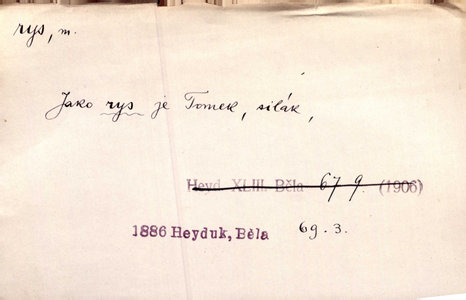 rys, m.
Jako rys je Tomek, silák,
Heyd. XLIII. Běla 67 9. (1906)
1886 Heyduk, Běla 69. 3.